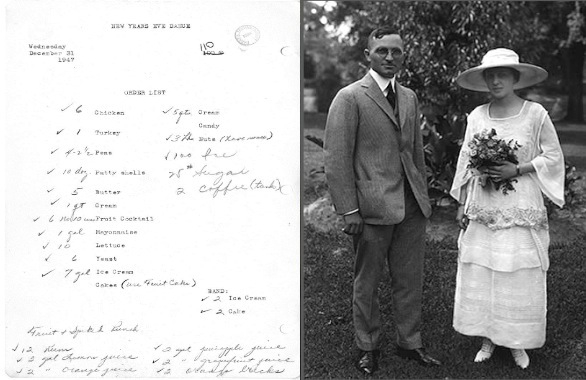 NEW YEARS EVE DANCE
Wednesday
December 31
1947
110
ORDER LIST
✓ 6 Chicken
✓ 1 Turkey
✓ 4-2½ Peas
✓ 10 doz Patty shells
✓ 5 Butter
✓ 1 qt Cream
✓ 6 No 10 Fruit Cocktail
✓ 1 gal Mayonnaise
✓ 10 Lettuce
✓ 6 Yeast
✓ 7 gal Ice Cream
Cakes (use Fruit Cake)
✓ 5 qts Cream
Candy
✓ 3 lb Nuts (have some)
✓ 100 Ice
25# Sugar
2 Coffee (tank)
BAND:
✓ 2 Ice Cream
✓ 2 Cake
Fruit & Punch
✓ 12 Rum
✓ 2 gal Lemon juice
✓ 2 " orange juice
✓ 2 gal pineapple juice
✓ 2 " grapefruit juice
✓ 2 orange bricks